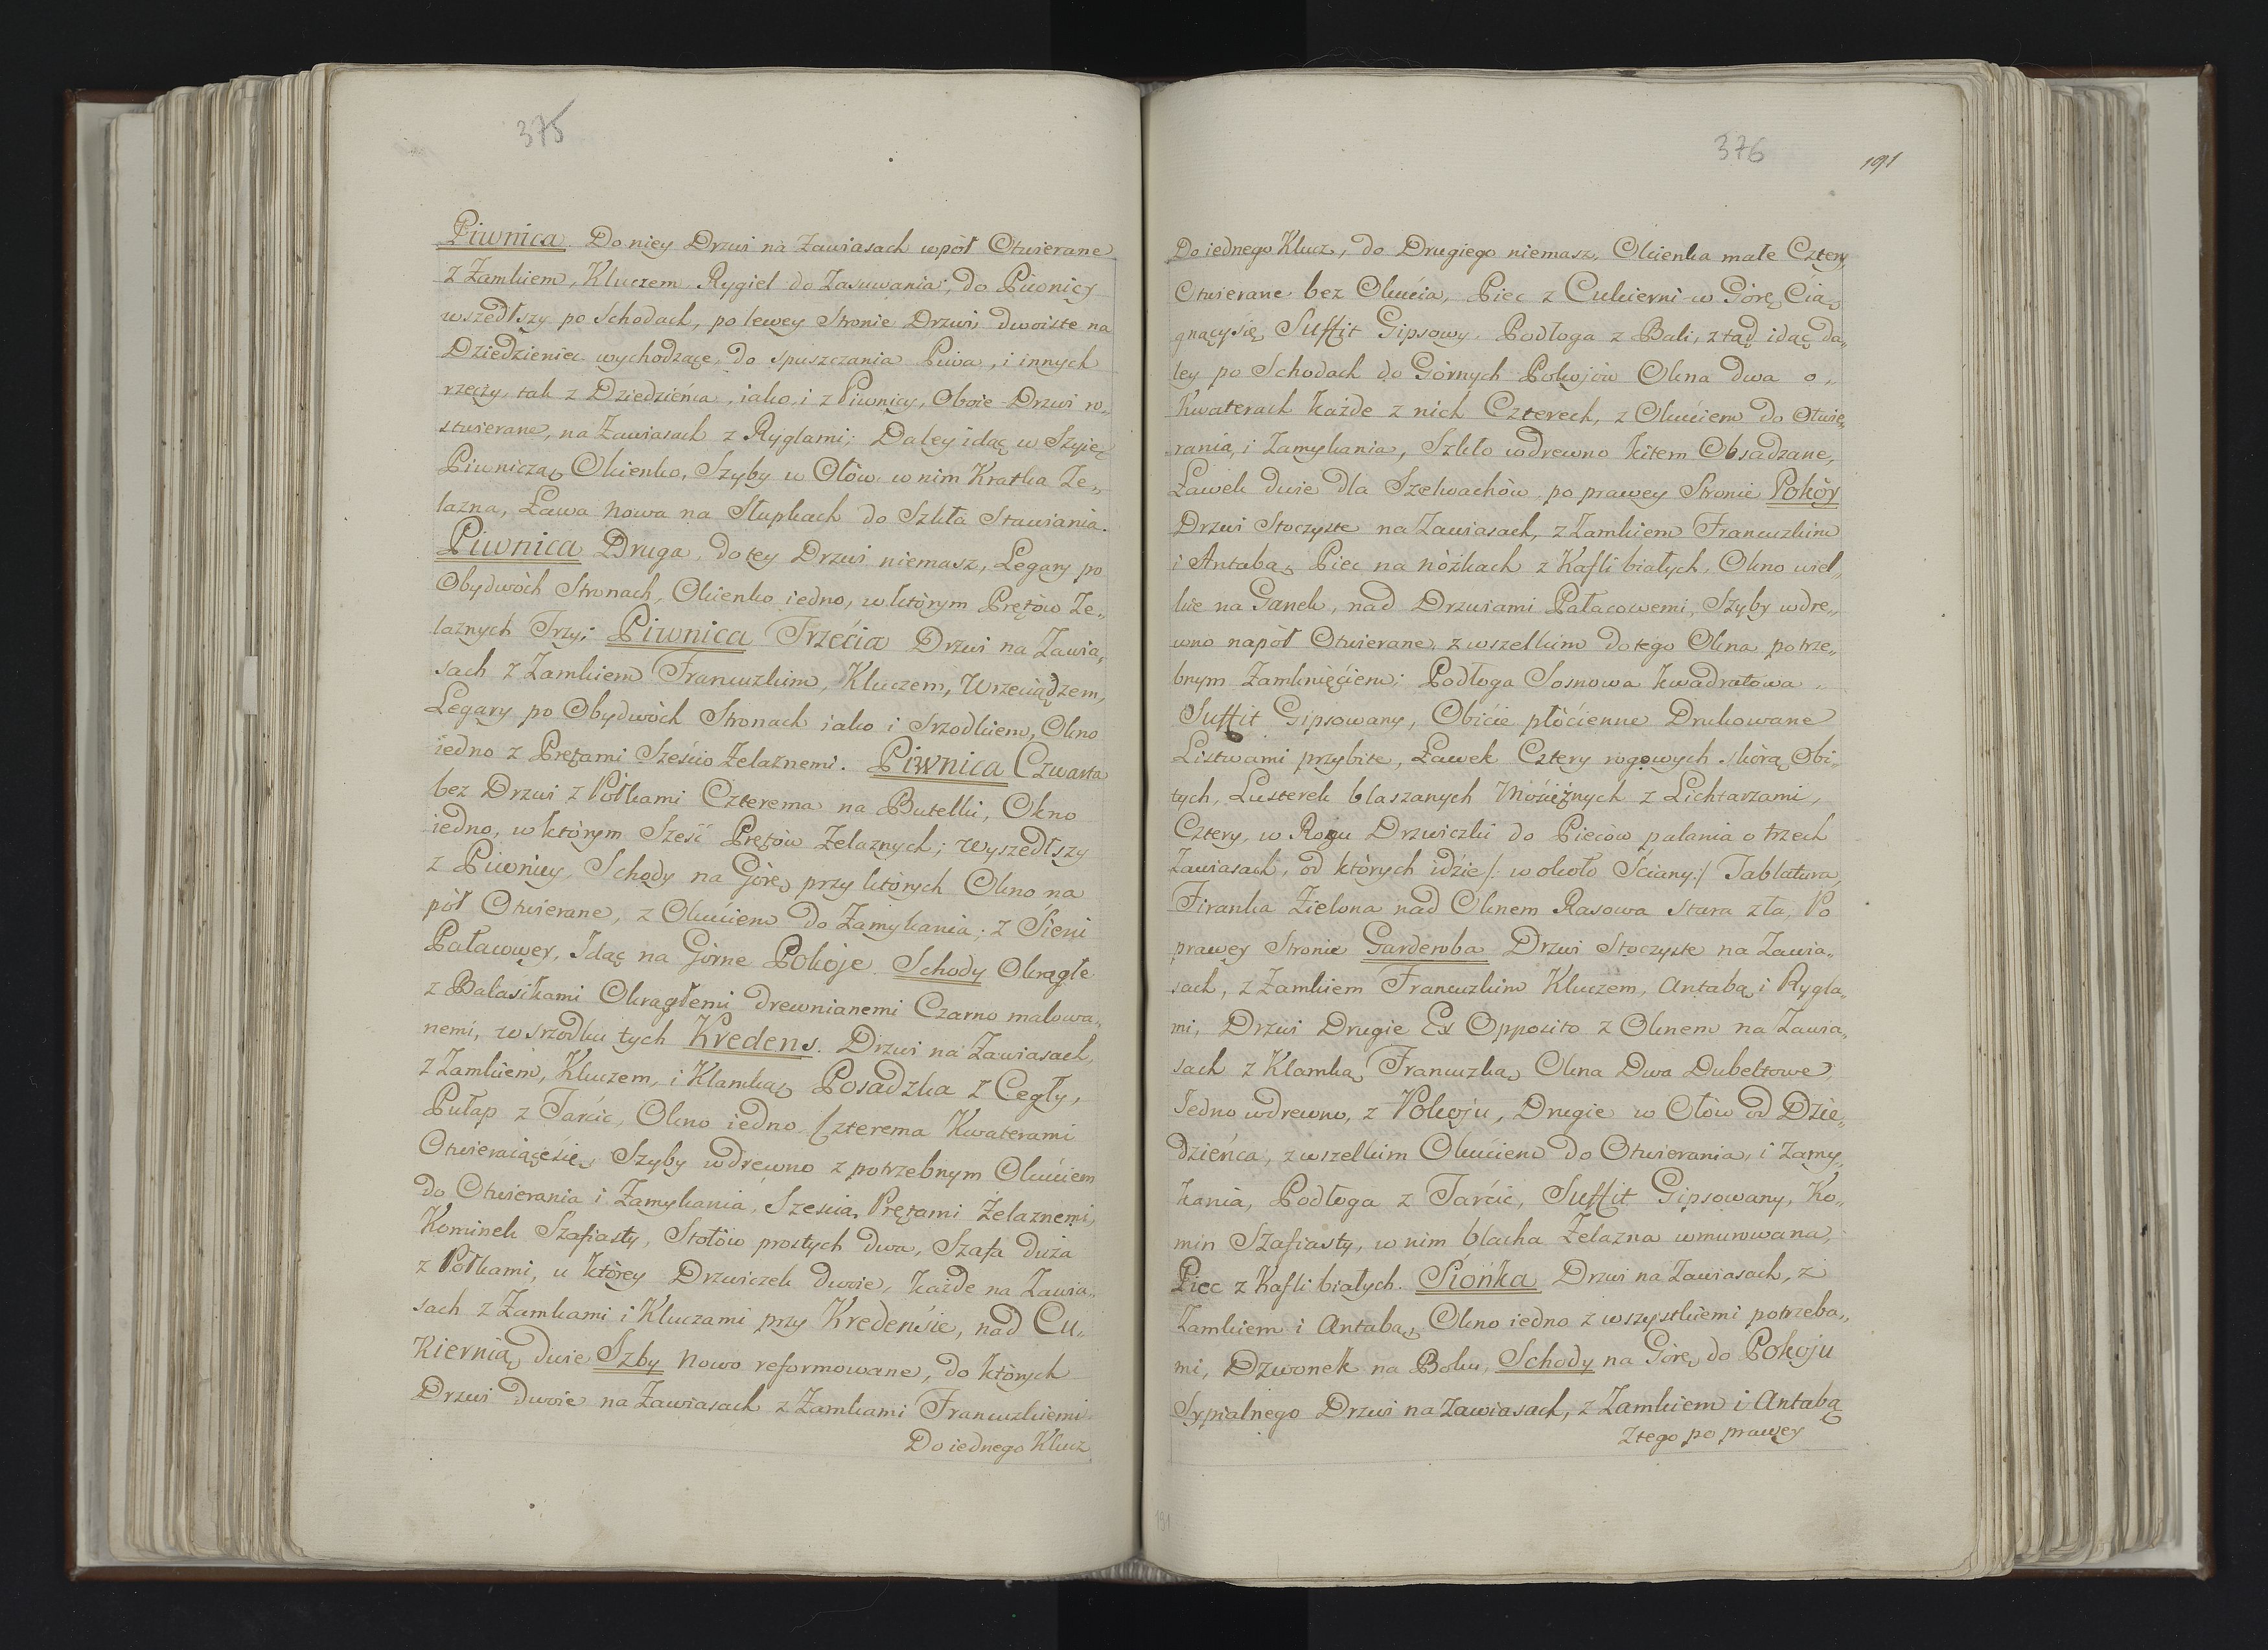 375
Piwnica. Do niey Drzwi na Zawiasach wpół Otwierane
z Zamkiem, Kluczem Rygiel do Zasuwania; do Piwnicy
wszedłszy po Schodach, po lewey Stronie Drzwi dwoiste na
Dziedzieniec wychodzące, do spuszczania Piwa, i innych
rzeczy, tak z Dziedzieńca, iako i z Piwnicy, Oboie Drzwi ro„
stwierane, na Zawiasach z Ryglami; Daley idąc w Szyię
Piwniczą Okienko, Szyby w Ołów w nim Kratka Że„
lazna, Ława Nowa na Słupkach do Szkła Stawiania.
Piwnica Druga, do tey Drzwi niemasz, Legary po
Obydwóch Stronach, Okienko iedno, w którym Prętów Że„
laznych Trzy; Piwnica Trzecia Drzwi na Zawia„
sach z Zamkiem Francuzkim, Kluczem, Wrzeciądzem,
Legary po Obydwóch Stronach iako i Srzodkiem, Okno
iedno z Prętami Sześcio Żelaznemi. Piwnica Czwarta
bez Drzwi z Półkami Czterema na Butelki, Okno
iedno, w którym Sześć Prętów Żelaznych; wyszedłszy
z Piwnicy, Schody na Górę, przy których Okno na
pół Otwierane, z Okuciem do Zamykania; z Sieni
Pałacowey, Idąc na Górne Pokoje Schody Okrągłe
z Balasikami Okrągłemi drewnianemi Czarno malowa„
nemi, w srzodku tych Kredens. Drzwi na Zawiasach,
z Zamkiem, Kluczem, i Klamką, Posadzka z Cegły,
Pułap z Tarcic, Okno iedno Czterema Kwaterami
Otwieraiącesię, Szyby wdrewno z potrzebnym Okuciem
do Otwierania i Zamykania, Sześcią Prętami Żelaznemi,
Kominek Szafiasty, Stołów prostych dwa, Szafa duża
z Półkami, u którey Drzwiczek dwoie, każde na Zawia„
sach z Zamkami i Kluczami przy Kredensie, nad Cu„
kiernią, dwie Szby Nowo reformowane, do których
Drzwi dwoie na Zawiasach z Zamkami Francuzkiemi
Do iednego Klucz
376
191
Do iednego Klucz, do Drugiego niemasz, Okienka małe Cztery,
Otwierane bez Okucia, Piec z Cukierni w Górę Cią„
gnący się, Suffit Gipsowy. Podłoga z Bali, ztąd idąc da„
ley po Schodach do Górnych Pokojów Okna dwa o„
Kwaterach każde z nich Czterech, z Okuciem do Otwie„
rania, i Zamykania, Szkło wdrewno kitem Obsadzane,
Ławek dwie dla Szelwachów, po prawey Stronie Pokóy
Drzwi Stoczyste na Zawiasach, z Zamkiem Francuzkim
i Antabą, Piec na nóżkach z Kafli białych, Okno wiel„
kie na Ganek, nad Drzwiami Pałacowemi, Szyby wdre„
wno napół Otwierane, z wszelkim do tego Okna potrze„
bnym Zamknięciem; Podłoga Sosnowa kwadratowa„
Suffit Gipsowany, Obicie płócienne Drukowane
Listwami przybite, Ławek Cztery rogowych skórą Obi„
tych, Lusterek blaszanych Mosiężnych z Lichtarzami,
Cztery, w Rogu Drzwiczki do Pieców palania o trzech
Zawiasach, od których idzie /: wokoło Ściany :/ Tablatura,
Firanka Zielona nad Oknem Rasowa stara zła, Po
prawey Stronie Garderoba Drzwi Stoczyste na Zawia„
sach, z Zamkiem Francuzkim Kluczem, Antabą i Rygla„
mi, Drzwi Drugie Ex Opposito z Oknem na Zawia„
sach z Klamką Francuzką, Okna Dwa Dubeltowe,
Jedno wdrewno, z Pokoju, Drugie w Ołów od Dzie„
dzieńca, z wszelkim Okuciem do Otwierania, i Zamy„
kania, Podłoga z Tarcic, Suffit Gipsowany, Ko„
min Szafiasty, w nim blacha Żelazna wmurowana,
Piec z Kafli białych. Siońka Drzwi na Zawiasach, z
Zamkiem i Antabą, Okno iedno z wszystkiemi potrzeba„
mi, Dzwonek na Boku, Schody na Górę do Pokoju
Sypialnego Drzwi na Zawiasach, z Zamkiem i Antabą
Ztego po prawey
191